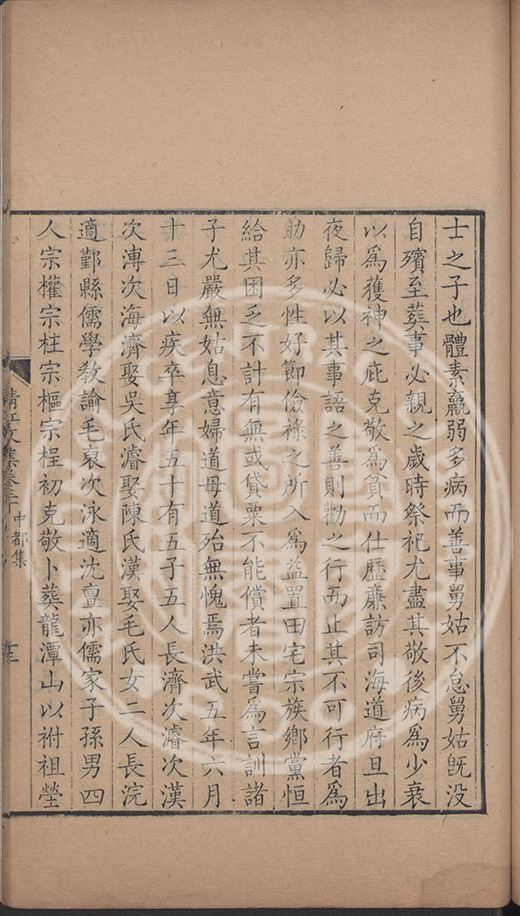 士之子也體素羸弱多病而善事舅姑不怠舅姑既没
自殯至葬事必親之歲時祭祀尤盡其敬後病為少衰
以為獲神之庇克敬為貧而仕歷廉訪司海道府旦出
夜歸必以其事語之善則勸之行而止其不可行者為
助亦多性好節儉祿之所入為益置田宅宗族鄉黨恒
給其困乏不計有無或貸粟不能償者未嘗為言訓諸
子尤嚴無姑息意婦道母道殆無愧焉洪武五年六月
十三日以疾卒享年五十有五子五人長濟次濬次漢
次漙次海濟娶吳氏濬娶陳氏漢娶毛氏女二人長浣
適鄞縣儒學教諭毛裒次泳適沈亶亦儒家子孫男四
人宗權宗柱宗樞宗桯初克敬卜葬龍潭山以祔祖塋
清江文集卷三十
中都集